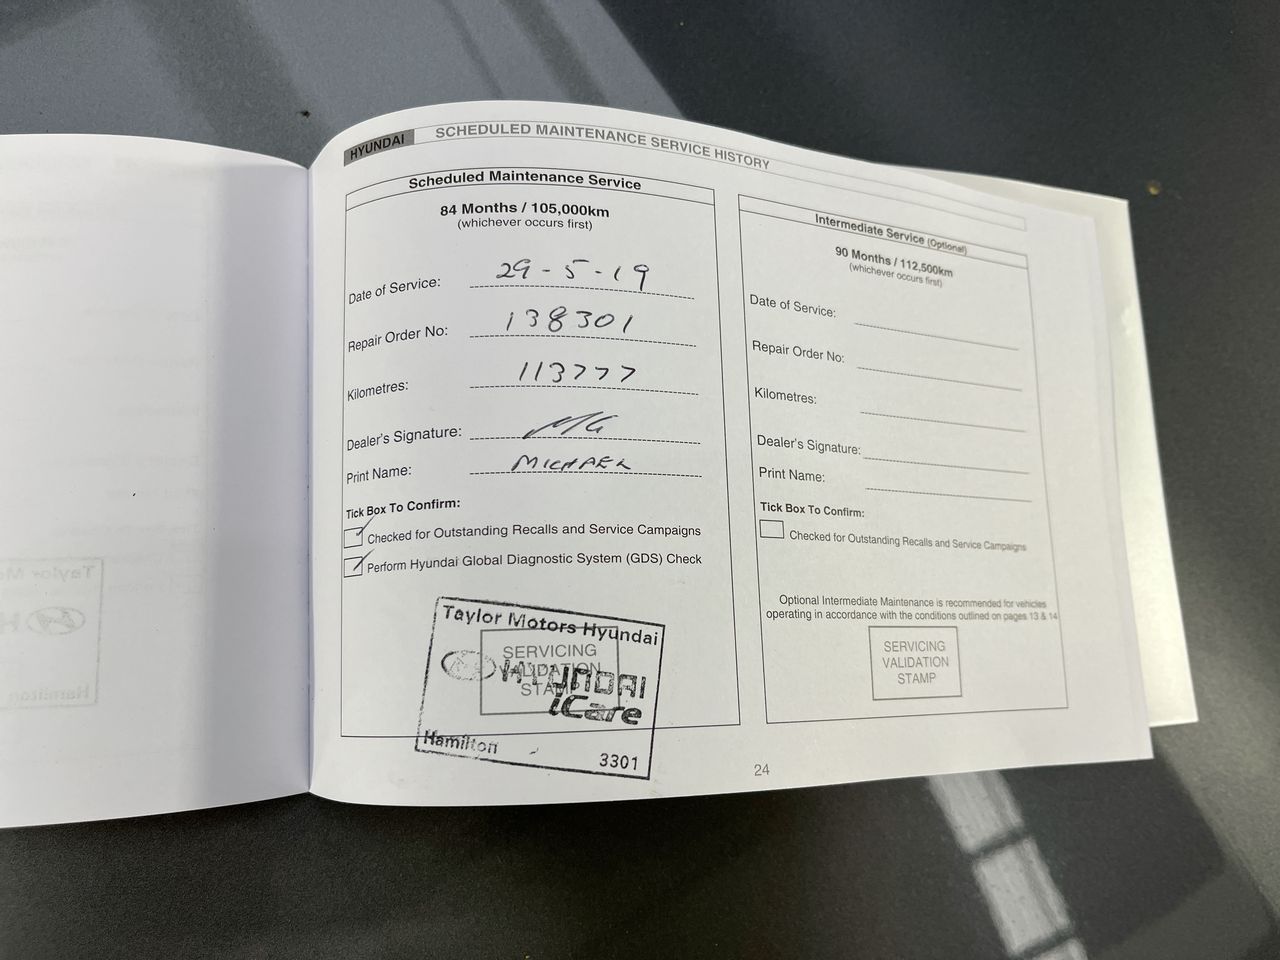 HYUNDAI
SCHEDULED MAINTENANCE SERVICE HISTORY
Scheduled Maintenance Service
84 Months / 105,000km
(whichever occurs first)
Date of Service: 29-5-19
Repair Order No: 138301
Kilometres: 113777
Dealer's Signature:
Print Name: MICHAEL
Tick Box To Confirm:
Checked for Outstanding Recalls and Service Campaigns
Perform Hyundai Global Diagnostic System (GDS) Check
Taylor Motors Hyundai
SERVICING
VALIDATION
STAMP
HYUNDAI
iCare
Hamilton 3301
Intermediate Service (Optional)
90 Months / 112,500km
(whichever occurs first)
Date of Service:
Repair Order No:
Kilometres:
Dealer's Signature:
Print Name:
Tick Box To Confirm:
Checked for Outstanding Recalls and Service Campaigns
Optional Intermediate Maintenance is recommended for vehicles
operating in accordance with the conditions outlined on pages 13 & 14
SERVICING
VALIDATION
STAMP
24